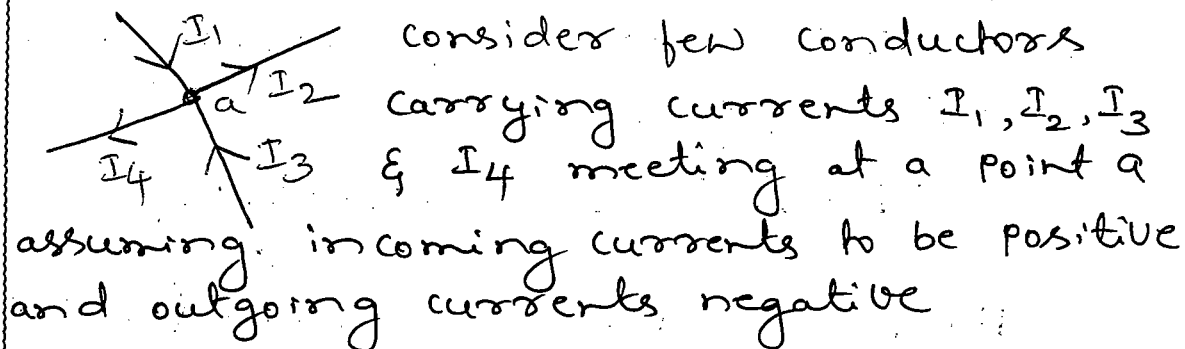 I₁ consider few conductors
a I₂ carrying currents I₁, I₂, I₃
I₄ I₃ & I₄ meeting at a point a
assuming incoming currents to be positive
and outgoing currents negative